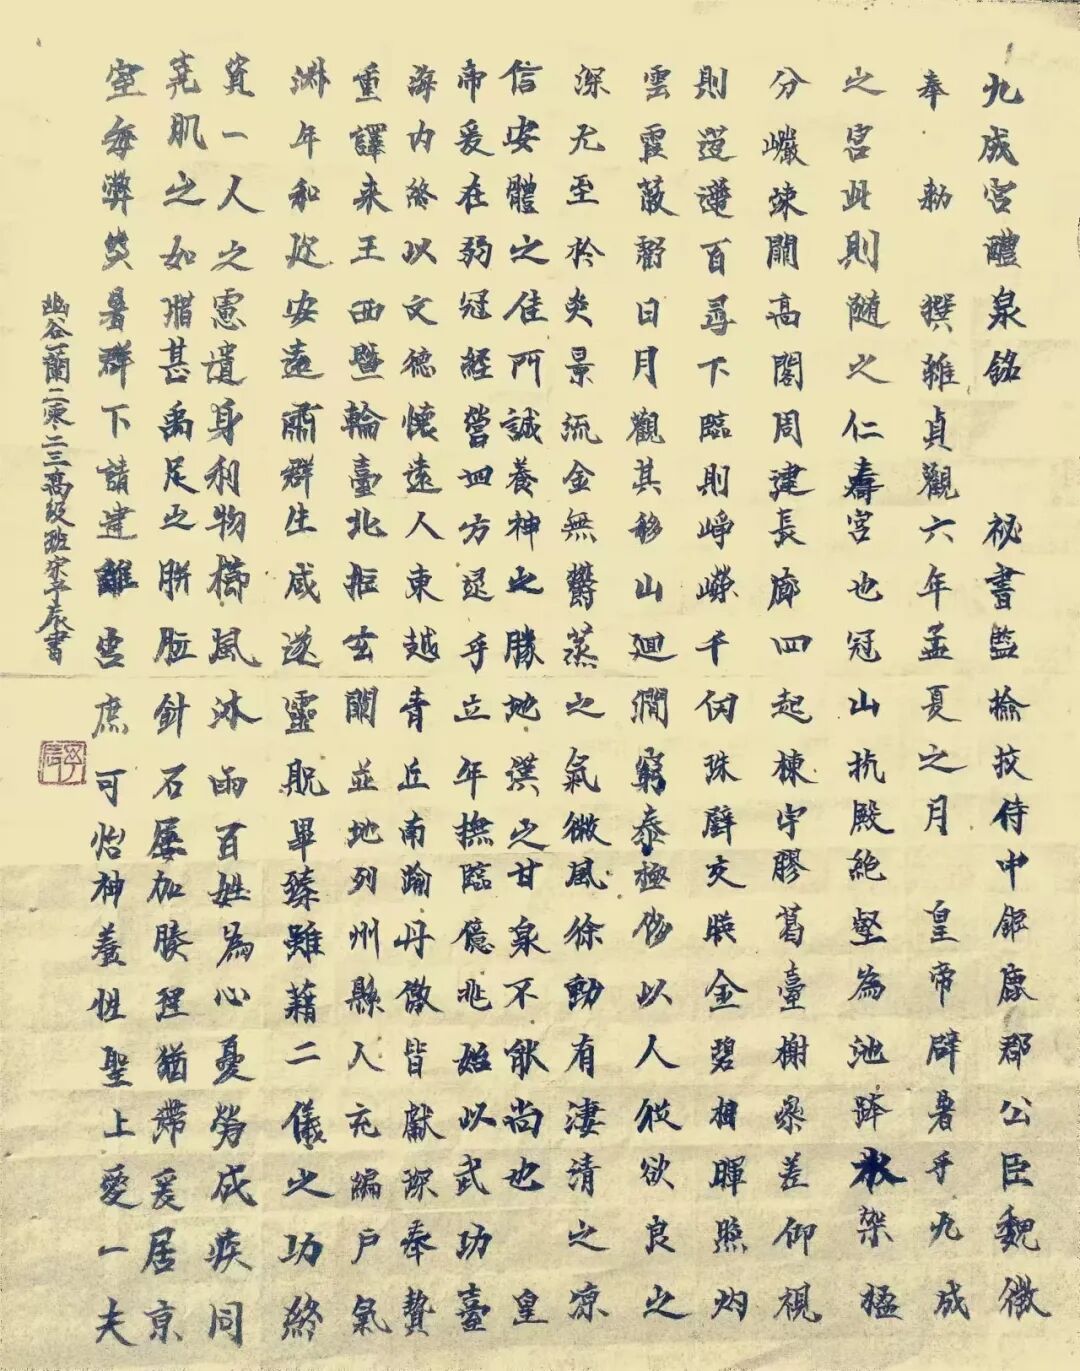 九成宮醴泉銘 祕書監撿挍侍中鉅鹿郡公臣魏徵
奉 勅 撰維貞觀六年孟夏之月 皇帝辟暑乎九成
之宮此則隨之仁壽宮也冠山抗殿絶壑為池跨水架楹
分巗竦闕高閣周建長廊四起棟宇膠葛臺榭叅差仰視
則迢遰百尋下臨則崢嶸千仞珠璧交暎金碧相暉照灼
雲霞蔽虧日月觀其移山廻澗窮泰極侈以人從欲良
深尤至於炎景流金無欝蒸之氣微風徐動有淒清之凉
信安體之佳所誠養神之勝地漢之甘泉不能尚也 皇
帝爰在弱冠經營四方逮乎立年撫臨億兆始以武功臺
海內終以文德懷遠人東越青丘南踰丹徼皆獻琛奉贄
重譯来王西曁輪臺北拒玄闕並地列州縣人充編戶氣
淋年和迩安遠肅群生咸遂靈貺畢臻雖藉二儀之功終
資一人之慮遺身利物櫛風沐雨百姓為心憂勞成疾同
堯肌之如腊甚禹足之胼胝針石屢加腠理猶滯爰居京
室每弊炎暑群下請建離宮庶可怡神養性聖上愛一夫
幽谷蘭二零二三高級班宋子辰書